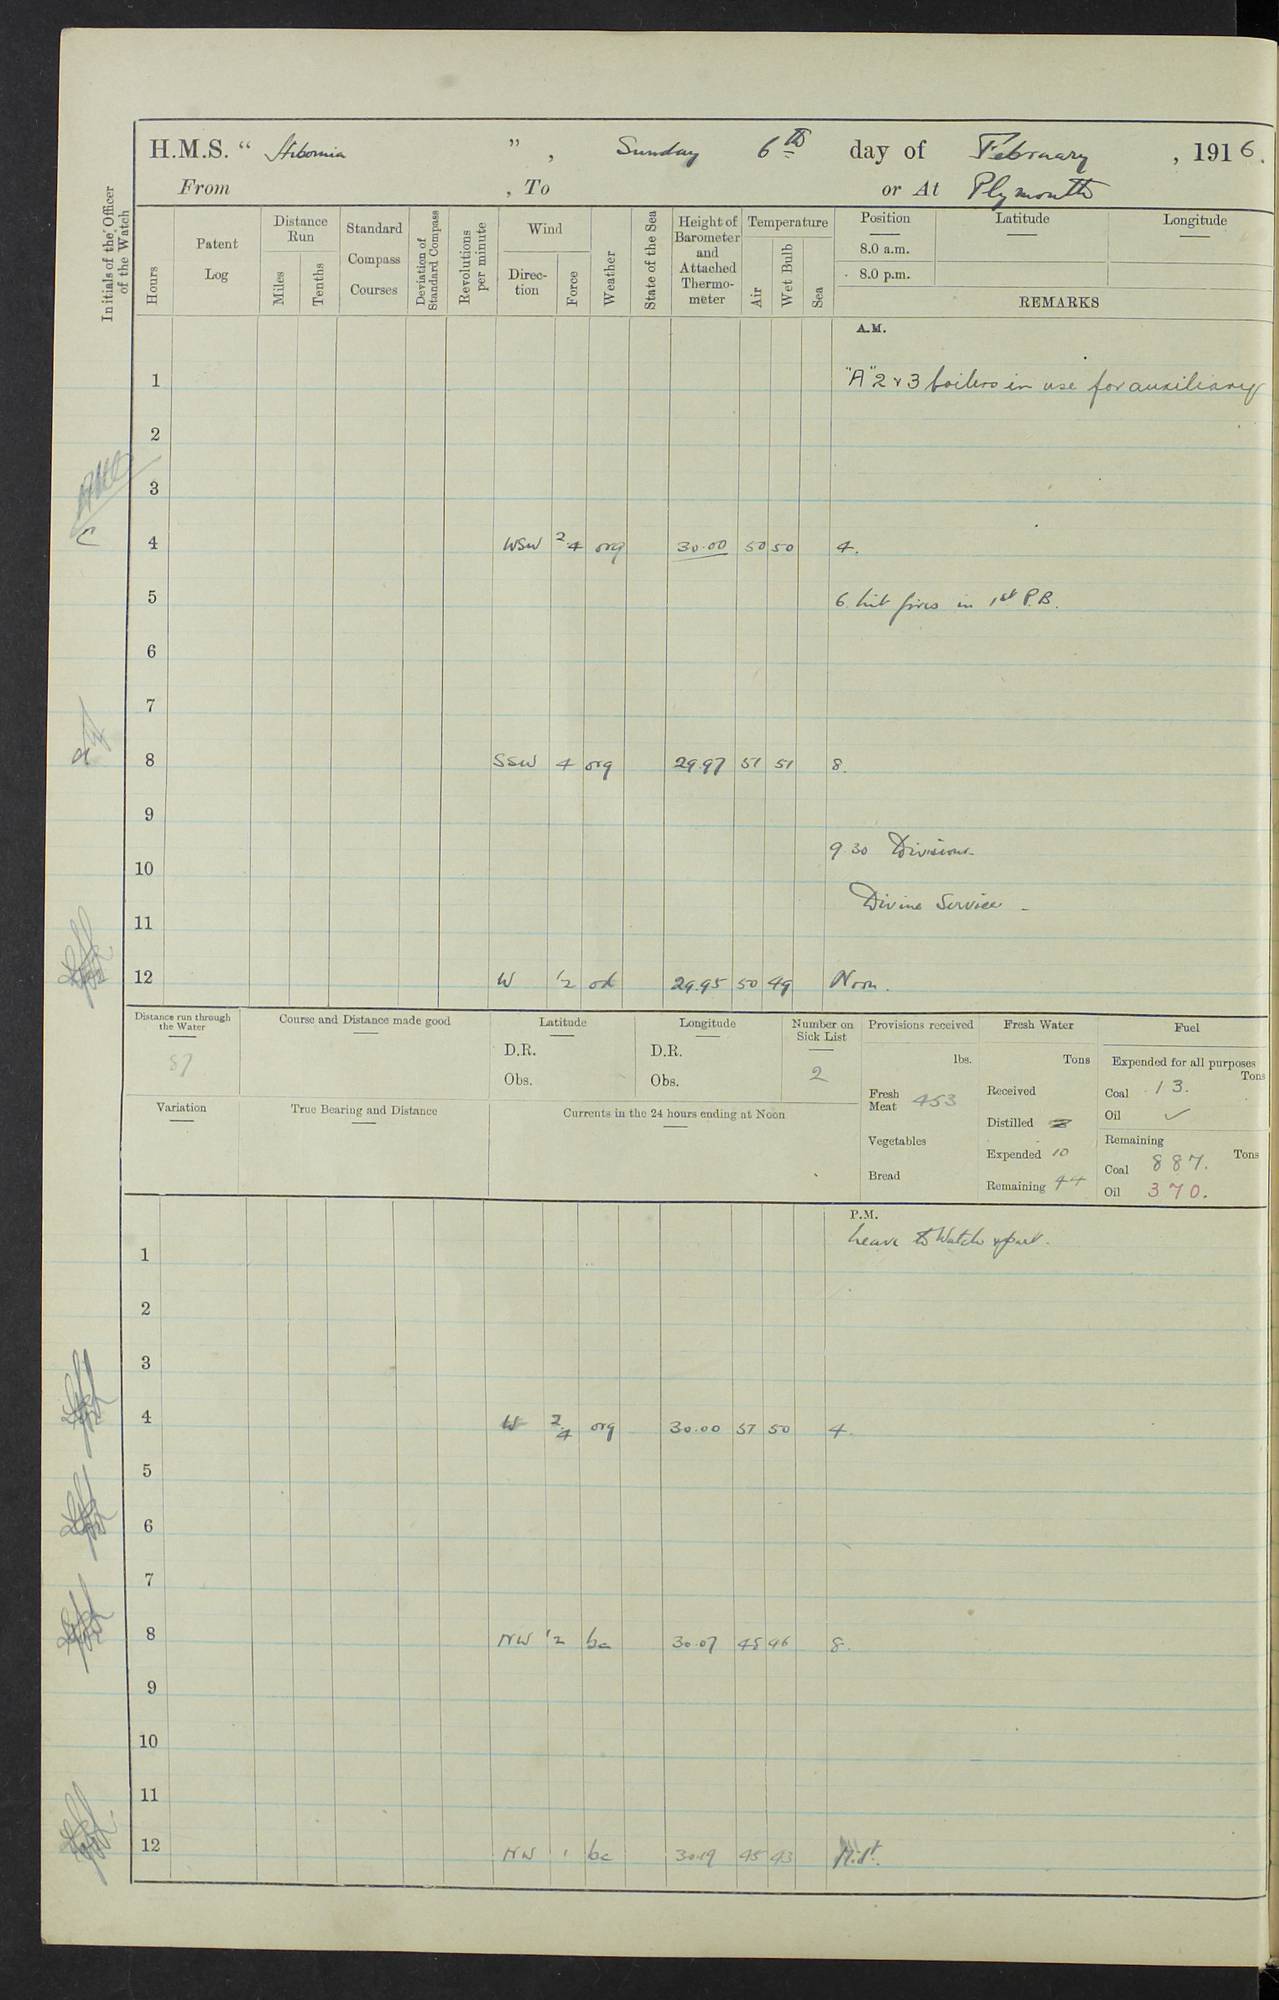 H.M.S. “ Hibernia ” , Sunday 6th day of February , 1916.
From , To or At Plymouth
Initials of the Officer of the Watch
Hours
Patent Log
Distance Run
Miles
Tenths
Standard Compass Courses
Deviation of Standard Compass
Revolutions per minute
Wind
Direc-tion
Force
Weather
State of the Sea
Height of Barometer and Attached Thermo-meter
Temperature
Air
Wet Bulb
Sea
Position Latitude Longitude
8.0 a.m.
8.0 p.m.
REMARKS
A.M.
1 "A" 2 & 3 boilers in use for auxiliary
2
3
4 WSW 2.4 org 30.00 50 50 4.
5 6. lit fires in 1st P.B.
6
7
8 SSW 4 org 29.97 51 51 8.
9
9 30 Divisions
10
Divine Service
11
12 W 1/2 od 29.95 50 49 Noon.
Distance run through the Water
87
Course and Distance made good
Latitude
D.R.
Obs.
Longitude
D.R.
Obs.
Number on Sick List
2
Provisions received
lbs.
Fresh Meat 453
Vegetables
Bread
Fresh Water
Tons
Received
Distilled
Expended 10
Remaining 44
Fuel
Expended for all purposes
Tons
Coal 13.
Oil ✓
Remaining
Tons
Coal 887.
Oil 370.
Variation
True Bearing and Distance
Currents in the 24 hours ending at Noon
P.M.
Leave to Watch & part.
1
2
3
4 W 2.4 org 30.00 51 50 4.
5
6
7
8 NW 1/2 bc 30.07 48 46 8.
9
10
11
12 NW 1 bc 30.19 45 43 Midt.